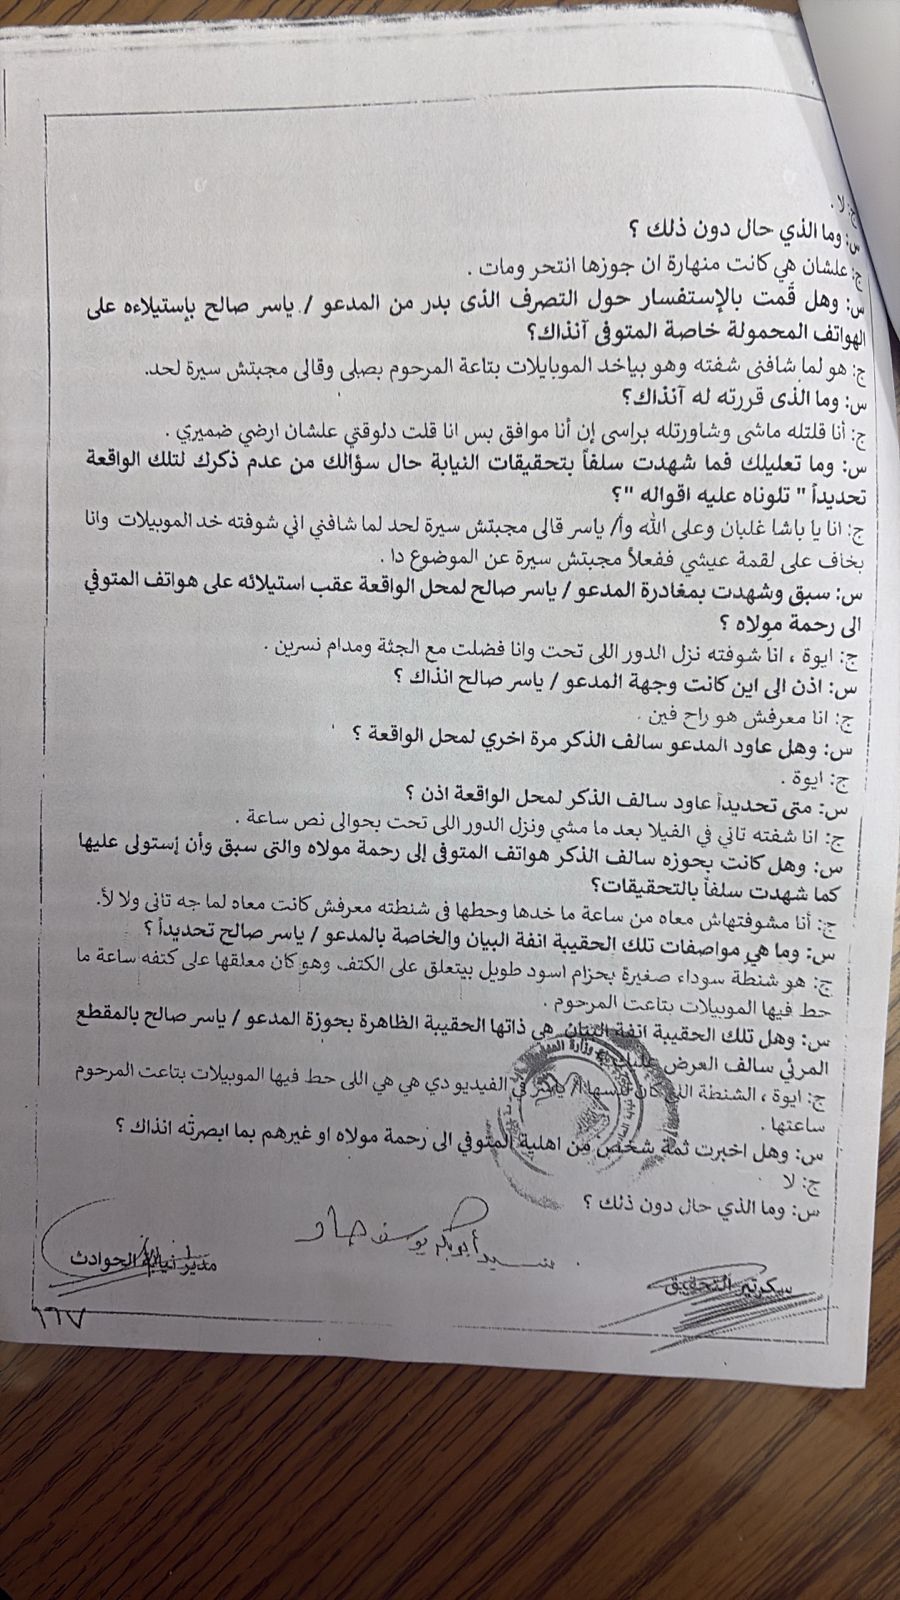 ج: لا .
س: وما الذي حال دون ذلك ؟
ج: علشان هي كانت منهارة ان جوزها انتحر ومات .
س: وهل قمت بالإستفسار حول التصرف الذى بدر من المدعو / ياسر صالح بإستيلاءه على
الهواتف المحمولة خاصة المتوفى آنذاك؟
ج: هو لما شافنى شفته وهو بياخد الموبايلات بتاعة المرحوم بصلى وقالى مجبتش سيرة لحد.
س: وما الذى قررته له آنذاك؟
ج: أنا قلتله ماشى وشاورتله براسى إن أنا موافق بس انا قلت دلوقتي علشان ارضي ضميري .
س: وما تعليلك فما شهدت سلفاً بتحقيقات النيابة حال سؤالك من عدم ذكرك لتلك الواقعة
تحديداً " تلوناه عليه اقواله "؟
ج: انا يا باشا غلبان وعلى الله وأ/ ياسر قالى مجبتش سيرة لحد لما شافني اني شوفته خد الموبيلات وانا
بخاف على لقمة عيشي ففعلاً مجبتش سيرة عن الموضوع دا .
س: سبق وشهدت بمغادرة المدعو / ياسر صالح لمحل الواقعة عقب استيلائه على هواتف المتوفي
الى رحمة مولاه ؟
ج: ايوة ، انا شوفته نزل الدور اللى تحت وانا فضلت مع الجثة ومدام نسرين .
س: اذن الى اين كانت وجهة المدعو / ياسر صالح انذاك ؟
ج: انا معرفش هو راح فين .
س: وهل عاود المدعو سالف الذكر مرة اخري لمحل الواقعة ؟
ج: ايوة .
س: متى تحديداً عاود سالف الذكر لمحل الواقعة اذن ؟
ج: انا شفته تاني في الفيلا بعد ما مشي ونزل الدور اللى تحت بحوالى نص ساعة .
س: وهل كانت بحوزه سالف الذكر هواتف المتوفى إلى رحمة مولاه والتى سبق وأن إستولى عليها
كما شهدت سلفاً بالتحقيقات؟
ج: أنا مشوفتهاش معاه من ساعة ما خدها وحطها في شنطته معرفش كانت معاه لما جه تانى ولا لأ.
س: وما هي مواصفات تلك الحقيبة انفة البيان والخاصة بالمدعو / ياسر صالح تحديداً ؟
ج: هو شنطة سوداء صغيرة بحزام اسود طويل بيتعلق على الكتف وهو كان معلقها على كتفه ساعة ما
حط فيها الموبيلات بتاعت المرحوم .
س: وهل تلك الحقيبة انفة البيان هي ذاتها الحقيبة الظاهرة بحوزة المدعو / ياسر صالح بالمقطع
المرئي سالف العرض عليك
ج: ايوة ، الشنطة اللى كان لابسها أ/ ياسر في الفيديو دي هي هي اللى حط فيها الموبيلات بتاعت المرحوم
ساعتها .
س: وهل اخبرت ثمة شخص من اهلية المتوفي الى رحمة مولاه او غيرهم بما ابصرته انذاك ؟
ج: لا
س: وما الذي حال دون ذلك ؟
سيد أبوبكر يوسف
سكرتير التحقيق
مدير نيابة الحوادث
١٦٧